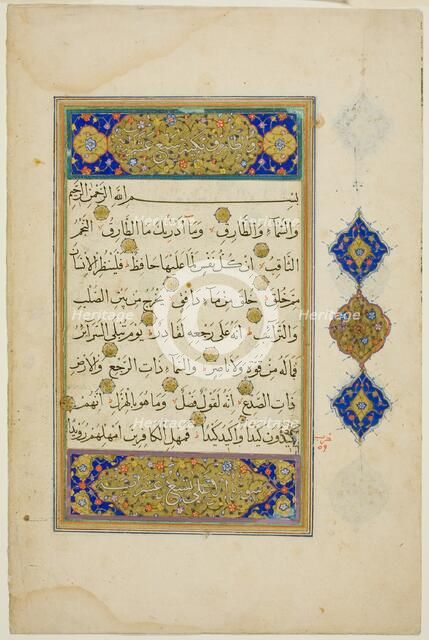 بسم الله الرحمن الرحيم
والسماء والطارق وما أدريك ما الطارق النجم
الثاقب إن كل نفس لما عليها حافظ فلينظر الإنسان
مم خلق خلق من ماء دافق يخرج من بين الصلب
والترائب إنه على رجعه لقادر يوم تبلى السرائر
فما له من قوة ولا ناصر والسماء ذات الرجع والأرض
ذات الصدع إنه لقول فصل وما هو بالهزل إنهم
يكيدون كيدا وأكيد كيدا فمهل الكافرين أمهلهم رويدا
حزب
٥٩
سورة الأعلى تسع
Heritage